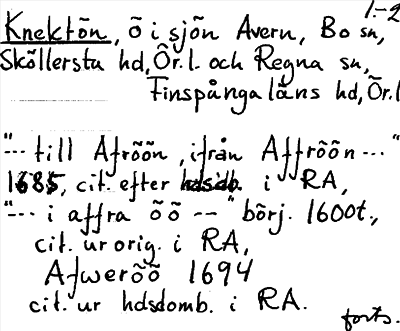 1.-2
Knektön, ö i sjön Avern, Bo sn,
Sköllersta hd, Ör.l. och Regna sn,
Finspånga läns hd, Ör.l
"--- till Afröön, ifrån Affröön ---"
1685, cit. efter i RA,
"--- i affra öö --" börj. 1600t.,
cit. ur orig. i RA,
Afweröö 1694
cit. ur hdsdomb. i RA.
forts.